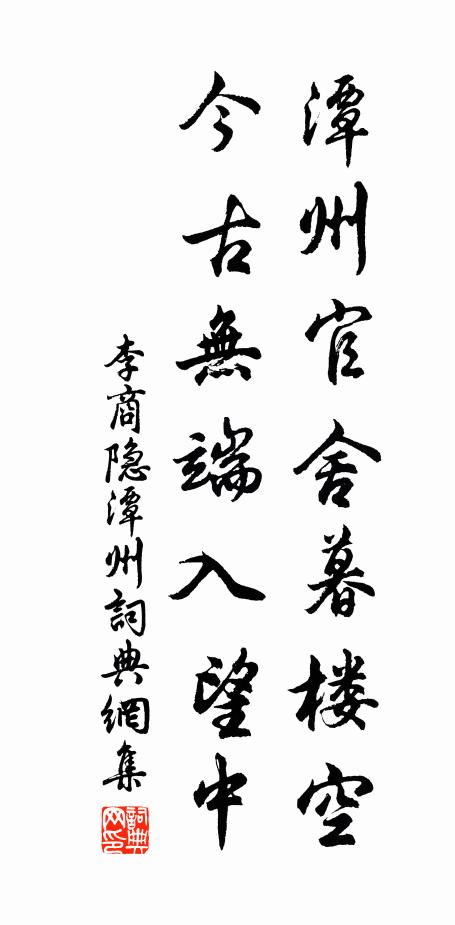 潭州官舍暮楼空
今古無端入望中
李商隐潭州詞典網集
詞典网印